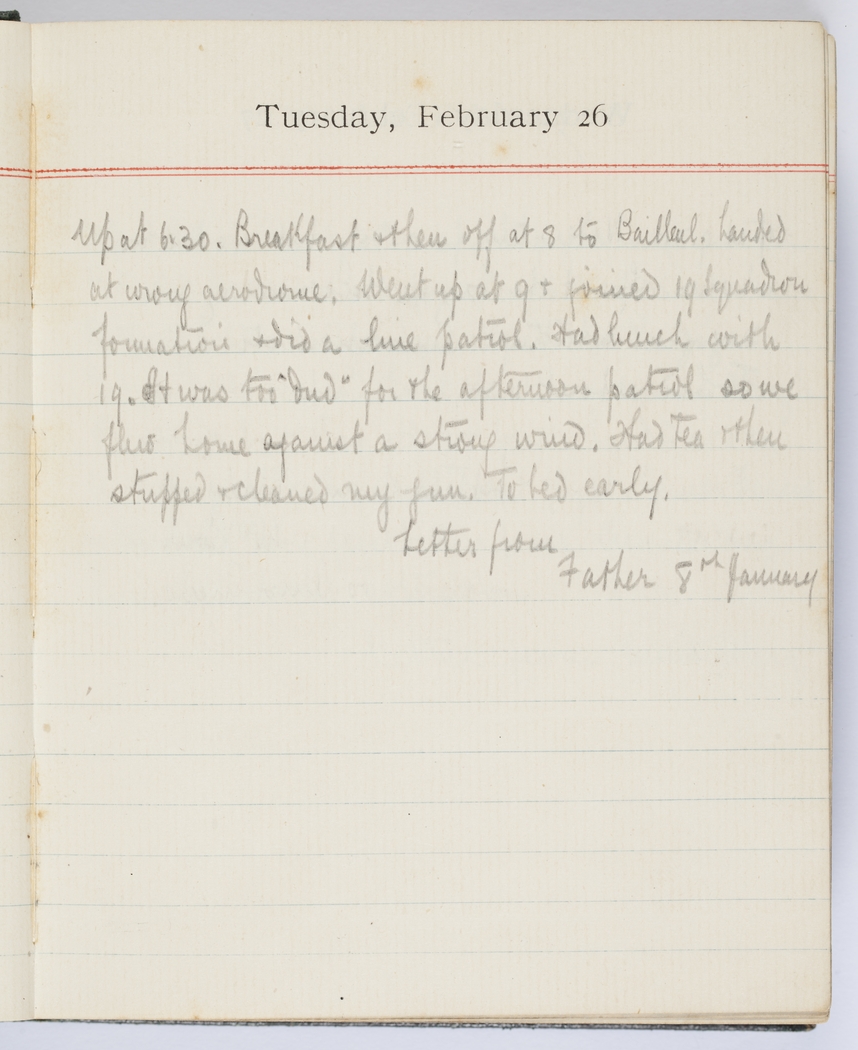 Tuesday, February 26
Up at 6.30. Breakfast & then off at 8 to Bailleul. Landed
at wrong aerodrome. Went up at 9 + joined 19 Squadron
formation & did a line patrol. Had lunch with
19. It was too "dud" for the afternoon patrol so we
flew home against a strong wind. Had tea & then
stuffed & cleaned my gun. To bed early.
Letter from
Father 8th January